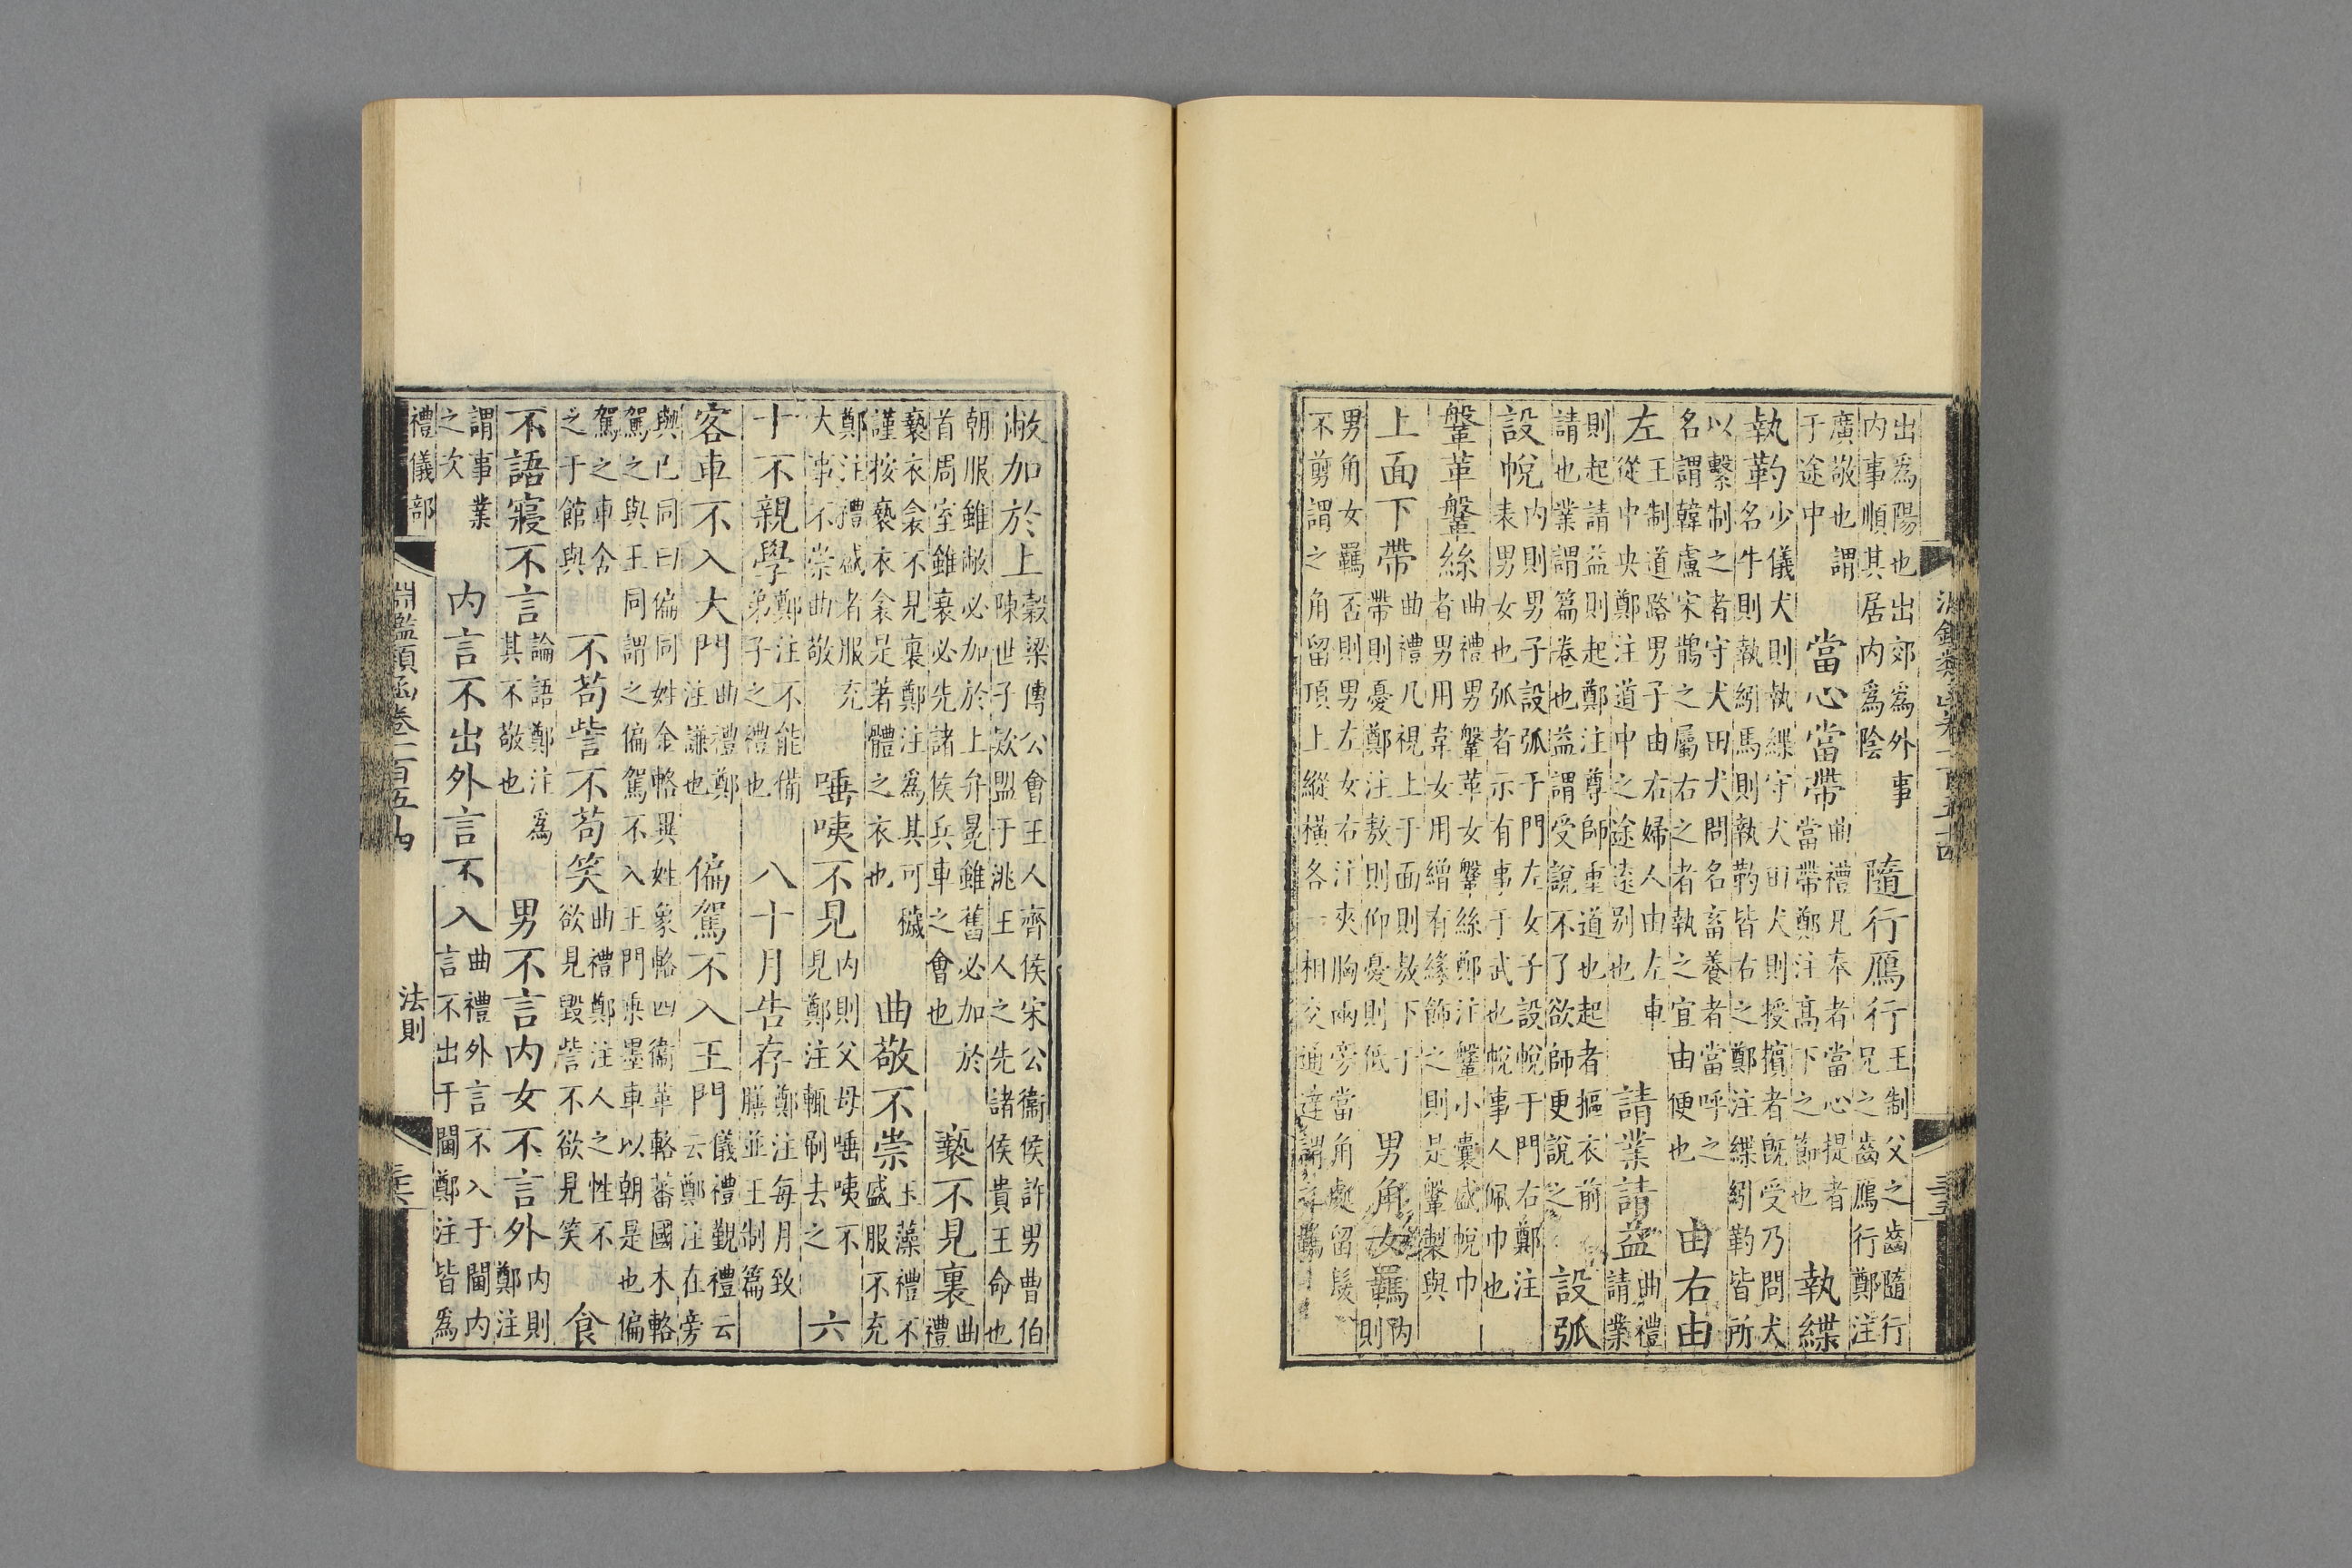 出為陽也出郊為外事内事順其居内為陰 隨行鴈行王制父之齒隨行兄之齒鴈行鄭注
廣敬也謂于途中 當心當帶曲禮凡奉者當心提者當帶鄭注髙下之節也 執緤
執靮少儀犬則執緤守犬田犬則授擯者既受乃問犬名牛則執紖馬則執靮皆右之鄭注緤紖靮皆所
以繫制之者守犬田犬問名畜養者當呼之名謂韓盧宋鵲之屬右之者執之宜由便也 由右由
左王制道路男子由右婦人由左車從中央鄭注道中之途逺别也 請業請益曲禮請業
則起請益則起鄭注尊師重道也起者摳衣前請也業謂篇卷也益謂受說不了欲師更說之 設弧
設帨内則男子設弧于門左女子設帨于門右鄭注表男女也弧者示有事于武也帨事人佩巾也
鞶革鞶絲曲禮男鞶革女鞶絲鄭注鞶小囊盛帨巾者男用韋女用繒有緣飾之則是鞶製與
上面下帶曲禮凡視上于面則敖下于帶則憂鄭注敖則仰憂則低 男角女羈内則
男角女羈否則男左女右注夾胸兩旁當角處留髮不剪謂之角留頂上縱橫各一相交通達謂之羈
三十五
敝加於上榖梁傳公會王人齊侯宋公衞侯許男曹伯陳世子欵盟于洮王人之先諸侯貴王命也
朝服雖敝必加於上弁冕雖舊必加於首周室雖衰必先諸侯兵車之會也 褻不見裏曲禮
褻衣衾不見裏鄭注為其可穢謹按褻衣衾是著體之衣也 曲敬不崇玉藻禮不盛服不充
鄭注禮盛者服充大事不崇曲敬 唾咦不見内則父母唾咦不見鄭注輒刷去之 六
十不親學鄭注不能備弟子之禮也 八十月告存鄭注每月致膳並王制篇
客車不入大門曲禮鄭注謙也 偏駕不入王門儀禮覲禮云云鄭注在旁
與已同曰偏同姓金輅異姓象輅四衞革輅蕃國木輅駕之與王同謂之偏駕不入王門乘墨車以朝是也偏
駕之車舍之于館與 不苟訾不苟笑曲禮鄭注人之性不欲見毀訾不欲見笑 食
不語寢不言論語鄭注為其不敬也 男不言内女不言外内則鄭注
謂事業之次 内言不出外言不入曲禮外言不入于閫内言不出于閫鄭注皆為
禮儀部
淵鑑類函卷一百五十四
法則